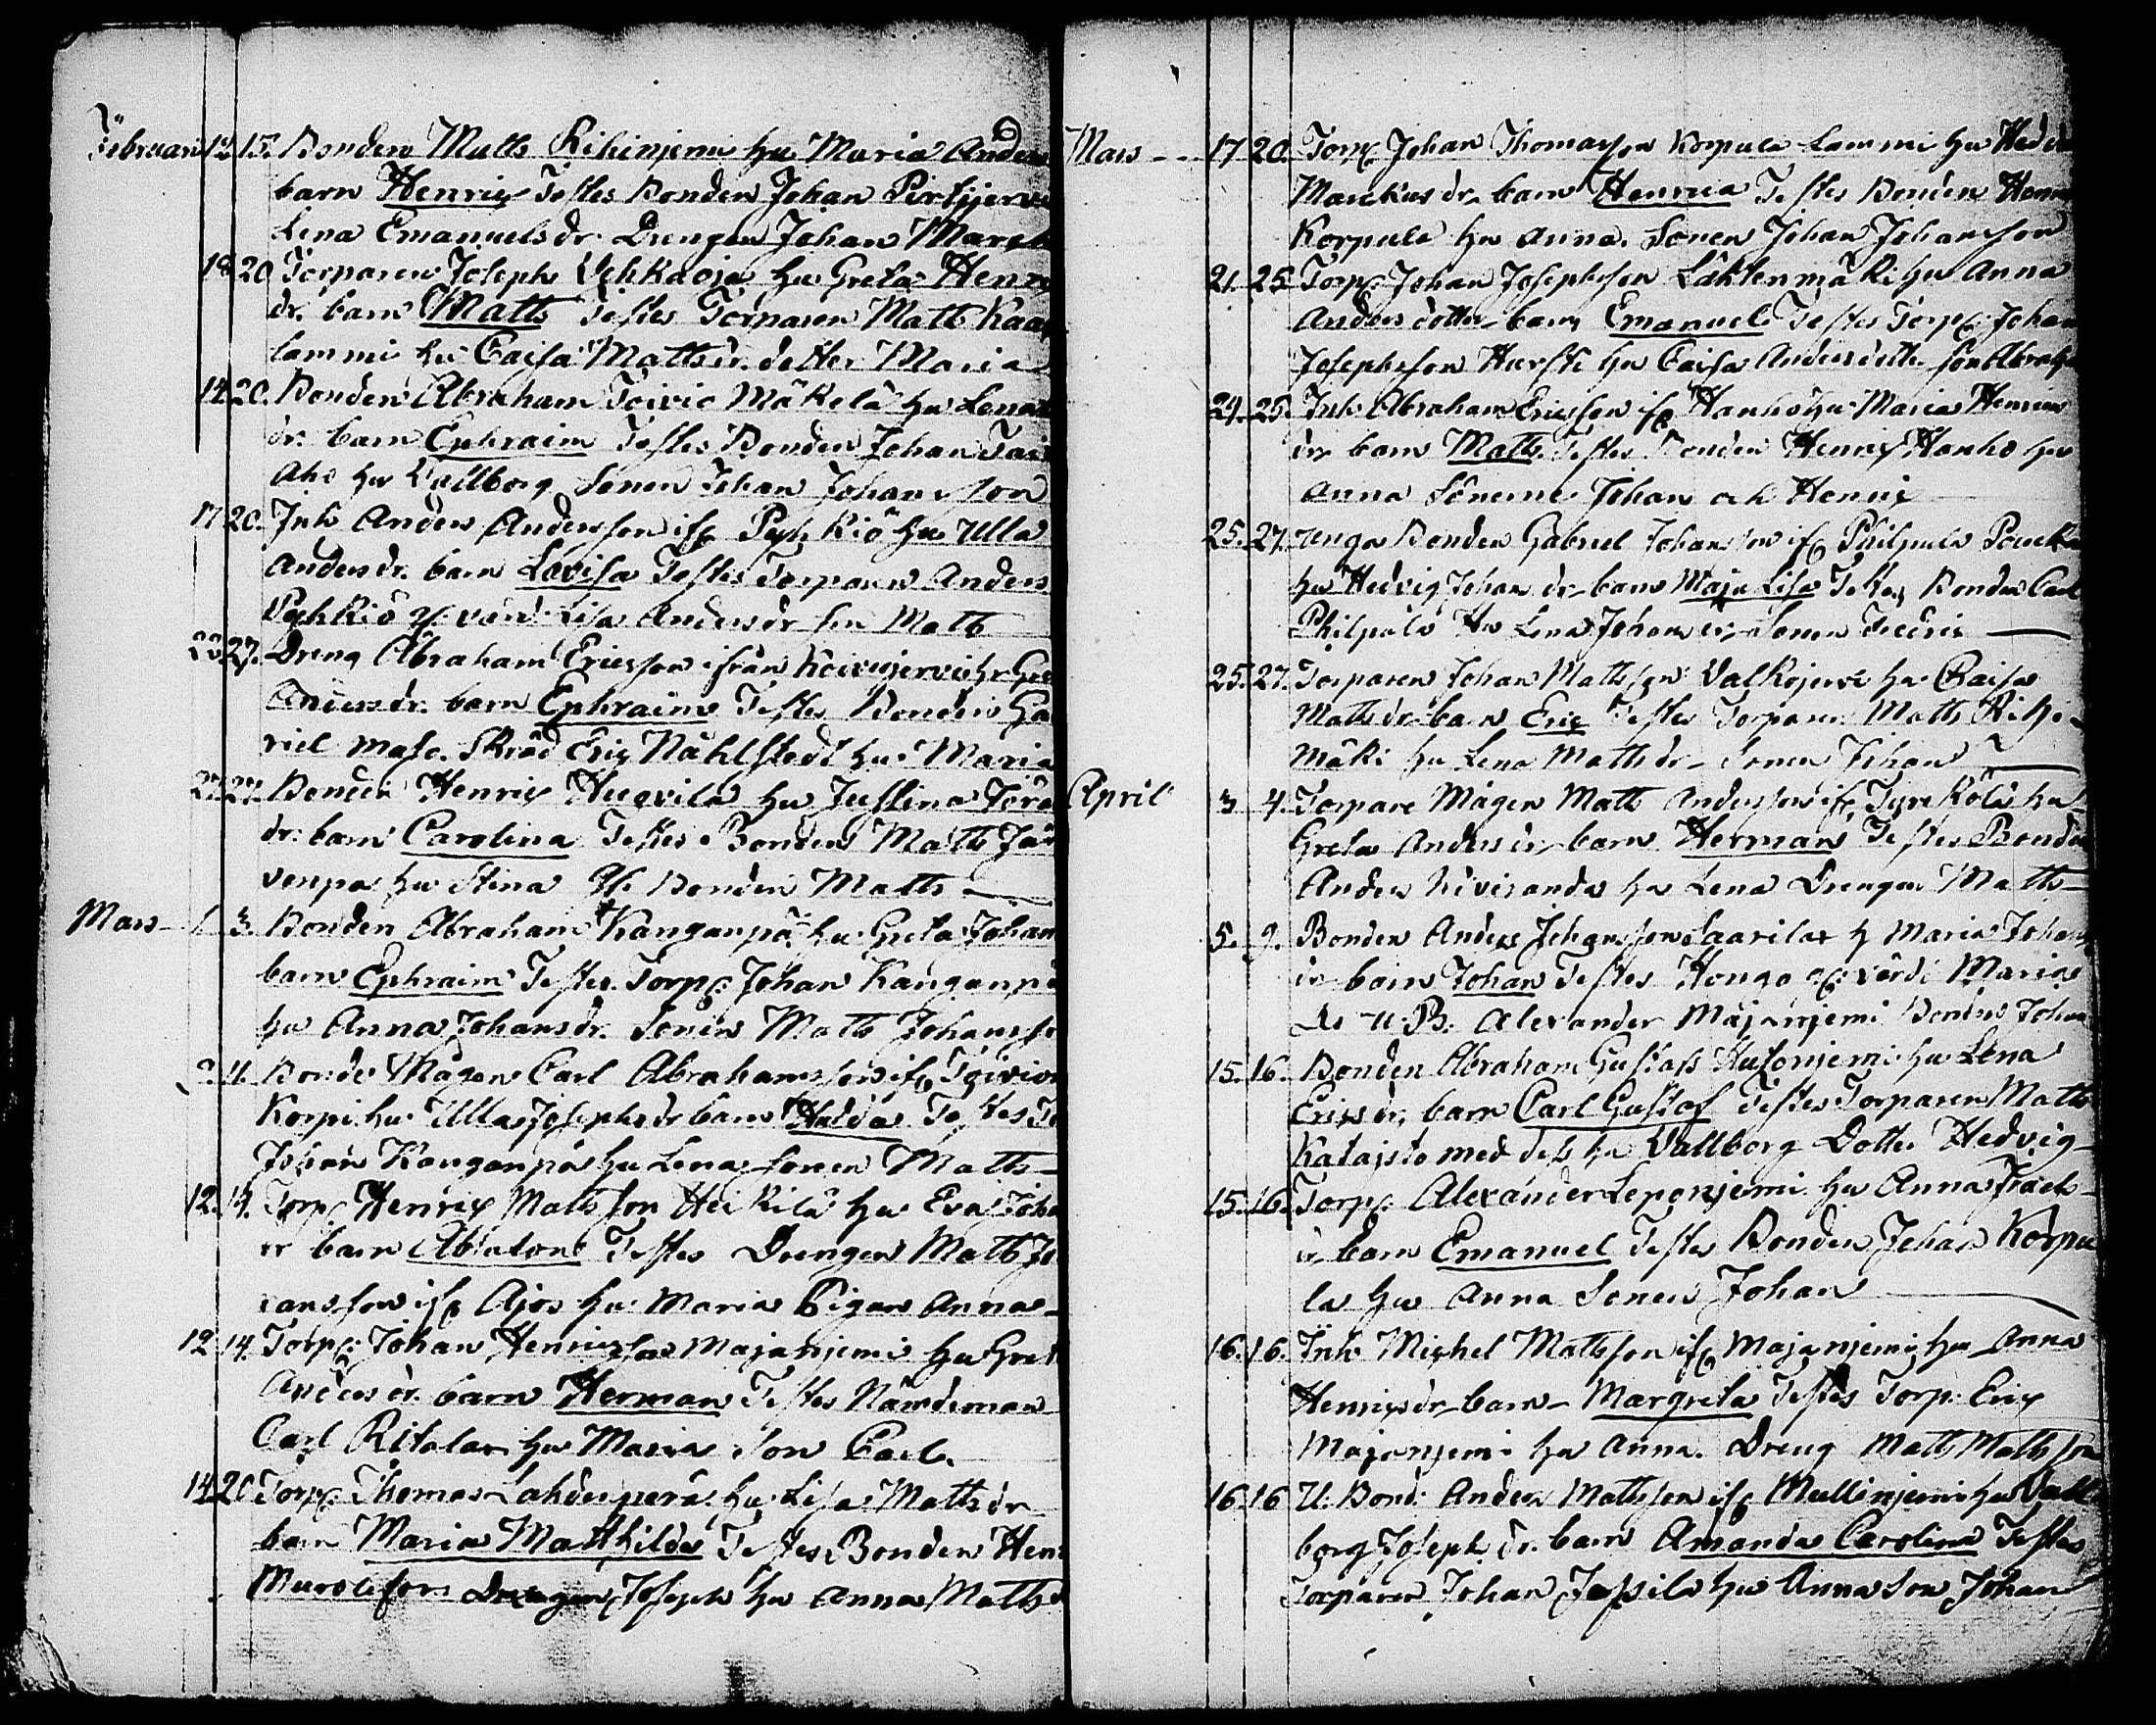 Februari 12. 15. Bonden Matts Rihinjemi hu Maria Anders
barn Henric Testes Bonden Johan Pirttjerv
Lena Emanuelsdr. Drengen Johan
18 20 Torparen Joseph Vehkaoja hu Greta Henr
dr. barn Matts Testes Torparen Matts Kaa
lammi hu Caisa Mattsdr. dotter Maria
14. 20. Bonden Abraham Toivio Mäkelä hu Lena
dr. barn Ephraim Testes Bonden Johan
Aho hu Vallborg Sonen Johan Johansson
17 20. Inh Anders Andersson if Pyhkiö hu Ulla
Andersdr. barn Lovisa Testes Torparen Anders
Pyhkiö Lisa Andersdr son Matts
23 27. Dreng Abraham Ericsson ifrån Koivujervi hu Gre
Andersdr. barn Ephraim Testes Bonden Ga
riel Skräd Eric Nåhlstedt hu Maria
27. 27. Bonden Henric Hugvila hu Justina
dr. barn Carolina Testes Bonden Matts Jär
venpä hu Stina Bonden Matts
Mars 1 3. Bonden Abraham Kanganpä hu Greta Johan
barn Ephraim Testes Torp: Johan Kanganpä
hu Anna Johansdr. Sonen Matts Johansso
11. Bonde Mågen Carl Abrahamsson if Toivio
Korpi hu Ulla Josephsdr barn Hulda Testes
Johan Kanganpä hu Lena Sonen Matts
12. 14. Torp: Henric Mattsson Heikilä hu Eva Joha
dr barn Absalon Testes Drengen Matts Jo
hansson if Ajos hu Maria Pigan Anna
12 14. Torp: Johan Henricsson Majanjemi hu Gret
Andersdr. barn Herman Testes Nämdeman
Carl Ritala hu Maria Son Carl.
14 20 Torp: Thomas Lahdenperä hu Lisa Mattsdr
barn Maria Mathilda Testes Bonden Hen
Drengen Joseph hu Anna Matts
Mars 17 20. Torp: Johan Thomasson Korpula Lammi hu Hed
Marckusdr. barn Henrica Testes Bonden Henr
Korpula hu Anna. Sonen Johan Johansson
21. 25 Torp: Johan Josephsson Läktenmäki hu Anna
Andersdotter barn Emanuel Testes Torp: Johan
Josephsson Hursti hu Caisa Andersdotter son Abrah
24. 25. Inh Abraham Ericsson if Hanho hu Maria Henrics
dr. barn Matts Testes Bonden Henric Hanho hu
Anna Sönerne Johan och Henric
25. 27. unga Bonden Gabriel Johansson if Philpula
hu Hedvig Johansdr. barn Maja Lisa Testes Bonden Carl
Philpula Hu Lena Johansdr. Sonen Fredric
25. 27. Torparen Johan Mattsson Valkejervi hu Caisa
Mattsdr. barn Eric Testes Torparen Matts
mäki hu Lena Mattsdr. Sonen Johan
April 3 4. Torpare Mågen Matts Andersson if hu
Greta Andersdr. barn Herman Testes Bonden
Anders Kiviranda hu Lena Drengen Matts
5. 9. Bonden Anders Johansson Saarila h Maria Johans
dr barn Johan Testes Hongo Maria
U. B. Alexander Majanjemi Bondens Johan
15. 16. Bonden Abraham Gustafs hu Lena
Ericsdr. barn Carl Gustaf Testes Torparen Matts
Katajsto med dess hu Vallborg Dotter Hedvig
15. 16. Torp: Alexander Leponjemi hu Anna
dr barn Emanuel Testes Bonden Johan Korpu
la hu Anna Sonen Johan
16. 16. Inh Michel Mattsson if Majanjemi hu Anna
Henricsdr barn Margreta Testes Torp: Eric
Majanjemi hu Anna. Dreng Matts Mattsson
16 16 U. Bond: Anders Mattsson if Mullinjemi hu Vall
borg Josephsdr. barn Amanda Carolina Testes
Torparen Johan hu Anna Son Johan